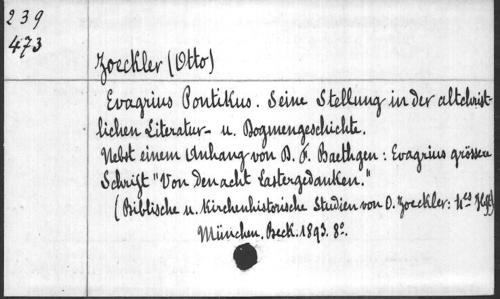 239
473
Zoeckler (Otto)
Evagrius Pontikus. Seine Stellung in der altchrist-
lichen Literatur- u. Dogmengeschichte.
Nebst einem Anhang von D. F. Baethgen: Evagrius grössere
Schrift "Von den acht Lastergedanken."
(Biblische u. kirchenhistorische Studien von O. Zoeckler: 4tes Heft)
München. Beck. 1893. 8º.